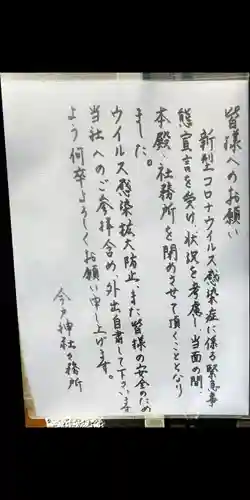 皆様へのお願い
新型コロナウイルス感染症に係る緊急事
態宣言を受け、状況を考慮し、当面の間、
本殿・社務所を閉めさせて頂くこととなり
ました。
ウイルス感染拡大防止、また皆様の安全のため
当社へのご参拝含め、外出自粛して下さいます
よう何卒よろしくお願い申し上げます。
今戸神社社務所